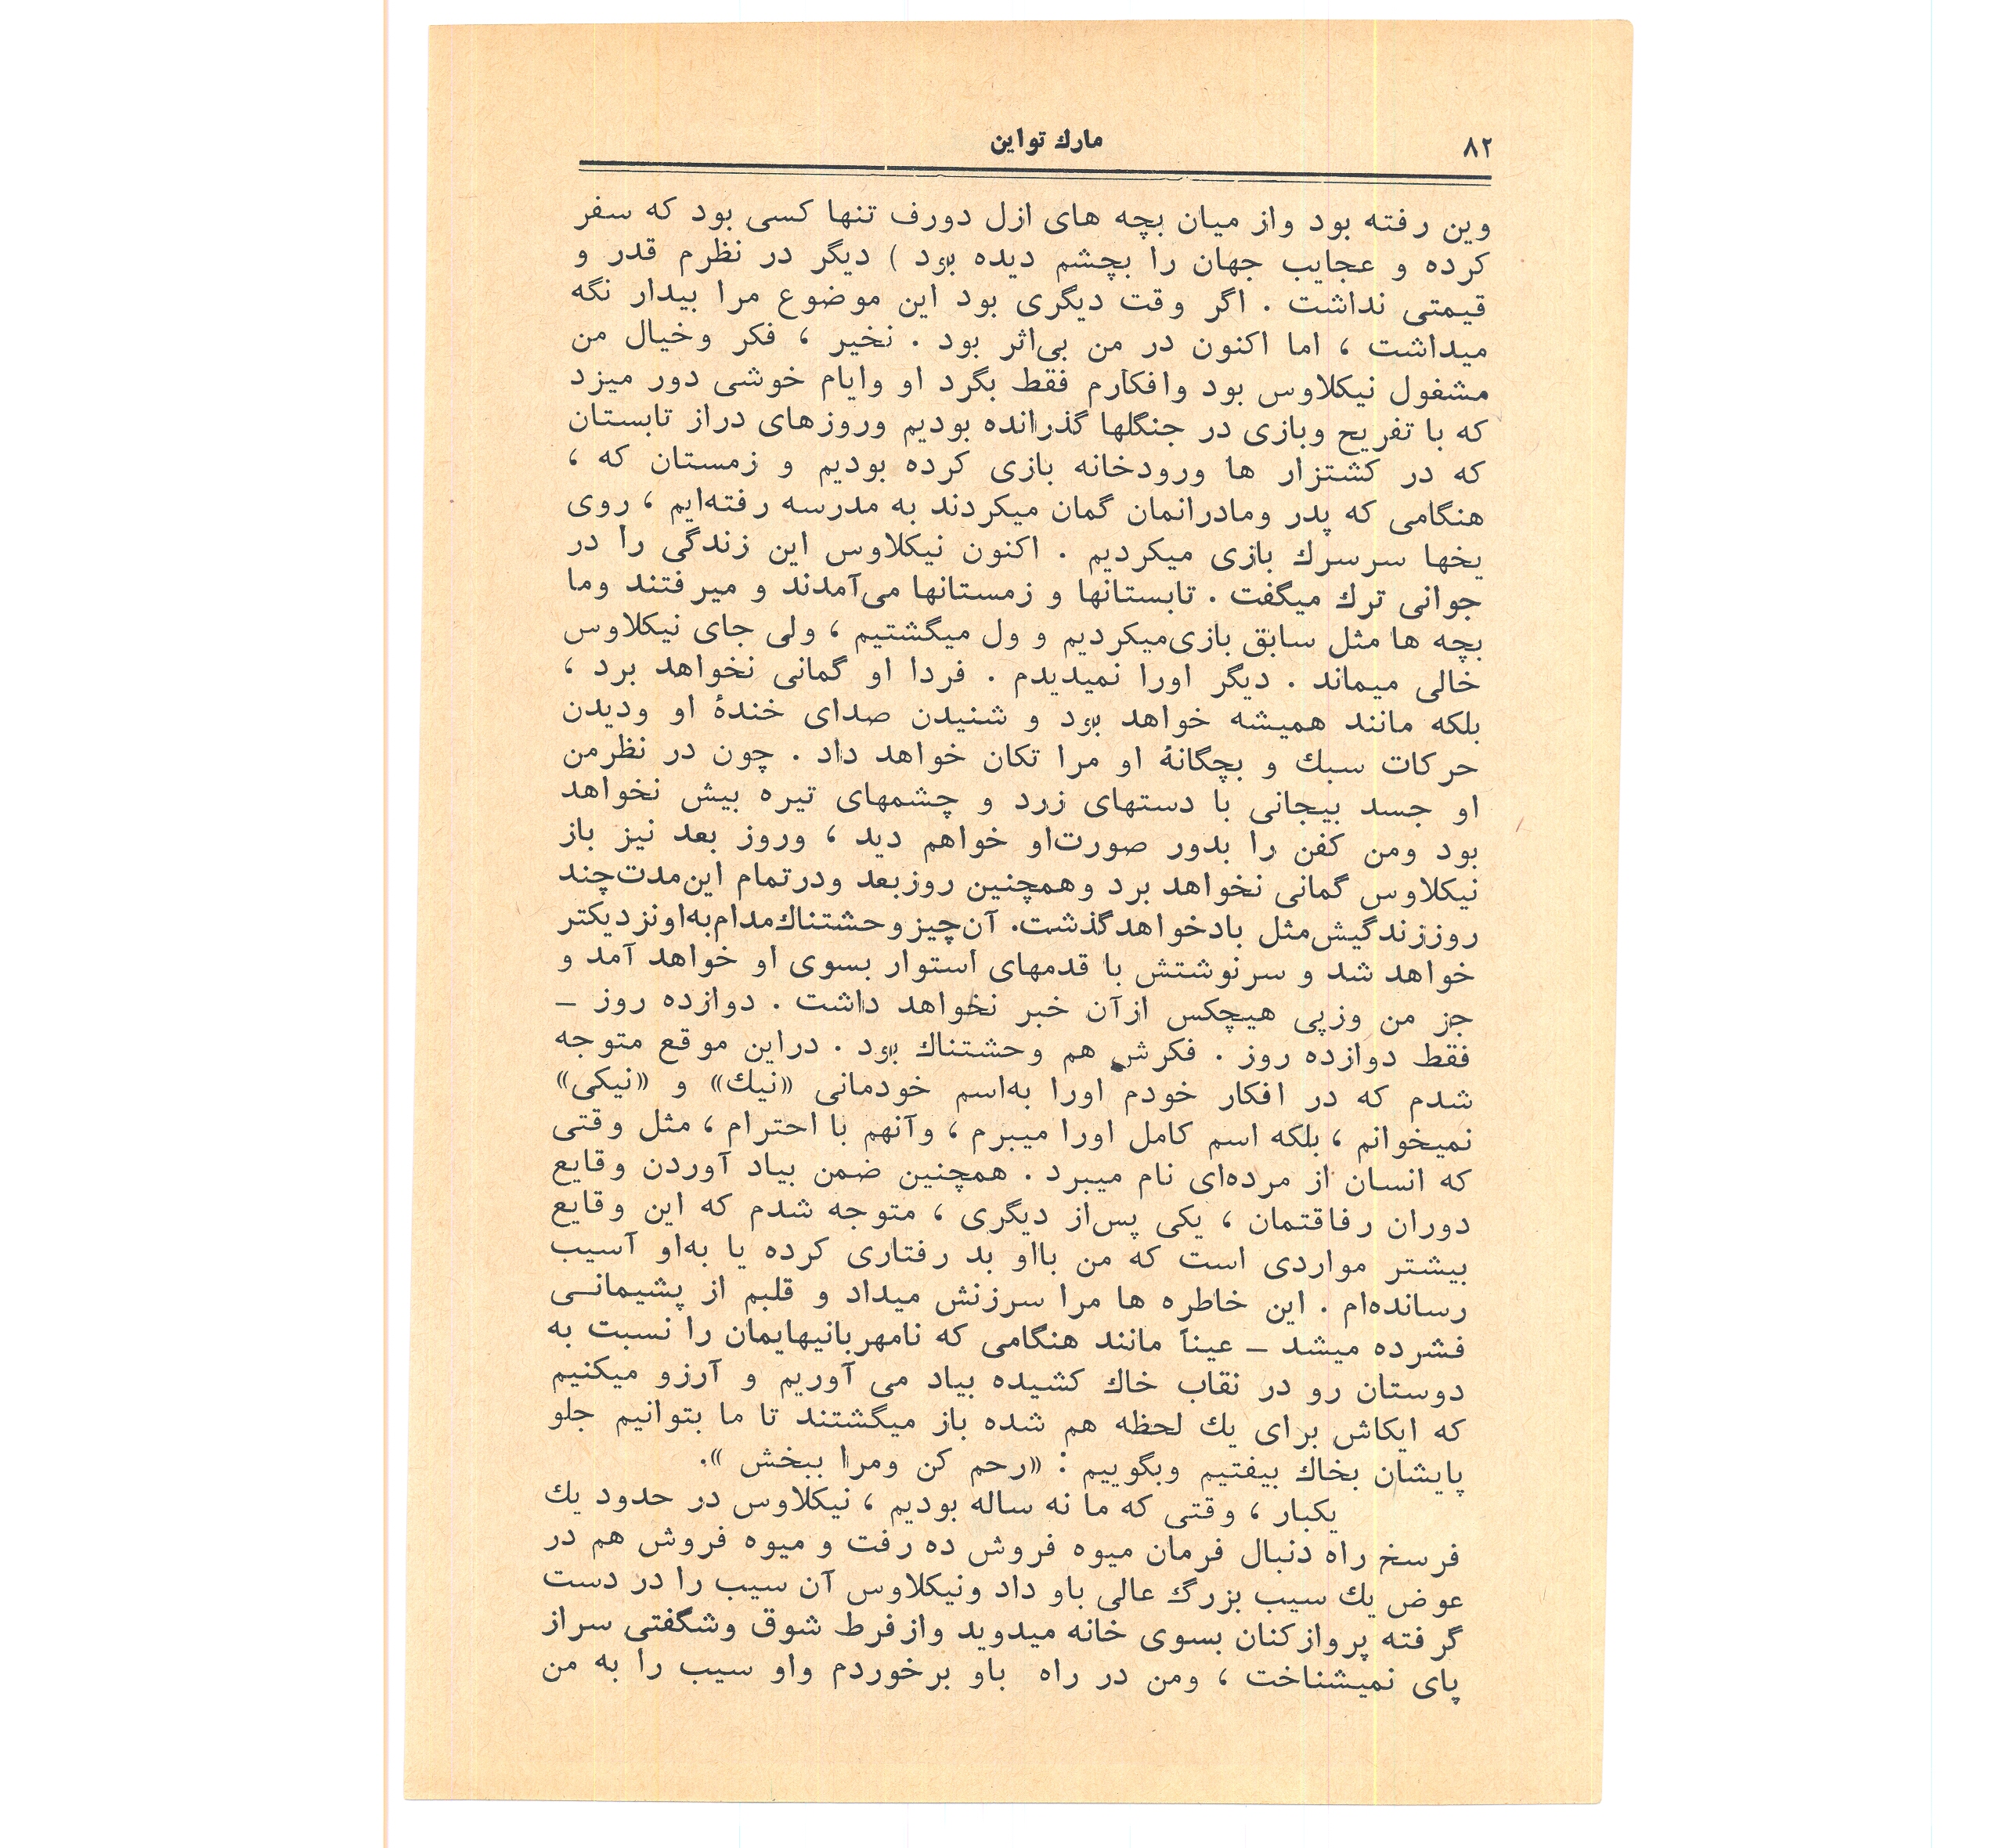 ۸۲
مارك تواین
وین رفته بود واز میان بچه های ازل دورف تنها کسی بود که سفر
کرده و عجایب جهان را بچشم دیده بود ) دیگر در نظرم قدر و
قیمتی نداشت . اگر وقت دیگری بود این موضوع مرا بیدار نگه
میداشت ، اما اکنون در من بی‌اثر بود . نخیر ، فکر وخیال من
مشغول نیکلاوس بود وافکارم فقط بگرد او وایام خوشی دور میزد
که با تفریح وبازی در جنگلها گذرانده بودیم وروزهای دراز تابستان
که در کشتزار ها ورودخانه بازی کرده بودیم و زمستان که ،
هنگامی که پدر ومادرانمان گمان میکردند به مدرسه رفته‌ایم ، روی
یخها سرسرك بازی میکردیم . اکنون نیکلاوس این زندگی را در
جوانی ترك میگفت . تابستانها و زمستانها می‌آمدند و میرفتند وما
بچه ها مثل سابق بازی‌میکردیم و ول میگشتیم ، ولی جای نیکلاوس
خالی میماند . دیگر اورا نمیدیدم . فردا او گمانی نخواهد برد ،
بلکه مانند همیشه خواهد بود و شنیدن صدای خندهٔ او ودیدن
حرکات سبك و بچگانهٔ او مرا تکان خواهد داد . چون در نظرمن
او جسد بیجانی با دستهای زرد و چشمهای تیره بیش نخواهد
بود ومن کفن را بدور صورت‌او خواهم دید ، وروز بعد نیز باز
نیکلاوس گمانی نخواهد برد وهمچنین روزبعد ودرتمام این‌مدت‌چند
روززندگیش‌مثل بادخواهدگذشت. آن‌چیزوحشتناك‌مدام‌به‌اونزدیکتر
خواهد شد و سرنوشتش با قدمهای استوار بسوی او خواهد آمد و
جز من وزپی هیچکس ازآن خبر نخواهد داشت . دوازده روز –
فقط دوازده روز . فکرش هم وحشتناك بود . دراین موقع متوجه
شدم که در افکار خودم اورا به‌اسم خودمانی «نیك» و «نیکی»
نمیخوانم ، بلکه اسم کامل اورا میبرم ، وآنهم با احترام ، مثل وقتی
که انسان از مرده‌ای نام میبرد . همچنین ضمن بیاد آوردن وقایع
دوران رفاقتمان ، یکی پس‌از دیگری ، متوجه شدم که این وقایع
بیشتر مواردی است که من بااو بد رفتاری کرده یا به‌او آسیب
رسانده‌ام . این خاطره ها مرا سرزنش میداد و قلبم از پشیمانـی
فشرده میشد – عیناً مانند هنگامی که نامهربانیهایمان را نسبت به
دوستان رو در نقاب خاك کشیده بیاد می آوریم و آرزو میکنیم
که ایکاش برای یك لحظه هم شده باز میگشتند تا ما بتوانیم جلو
پایشان بخاك بیفتیم وبگوییم : «رحم کن ومرا ببخش ».
یکبار ، وقتی که ما نه ساله بودیم ، نیکلاوس در حدود یك
فرسخ راه دنبال فرمان میوه فروش ده رفت و میوه فروش هم در
عوض یك سیب بزرگ عالی باو داد ونیکلاوس آن سیب را در دست
گرفته پروازکنان بسوی خانه میدوید وازفرط شوق وشگفتی سراز
پای نمیشناخت ، ومن در راه باو برخوردم واو سیب را به من